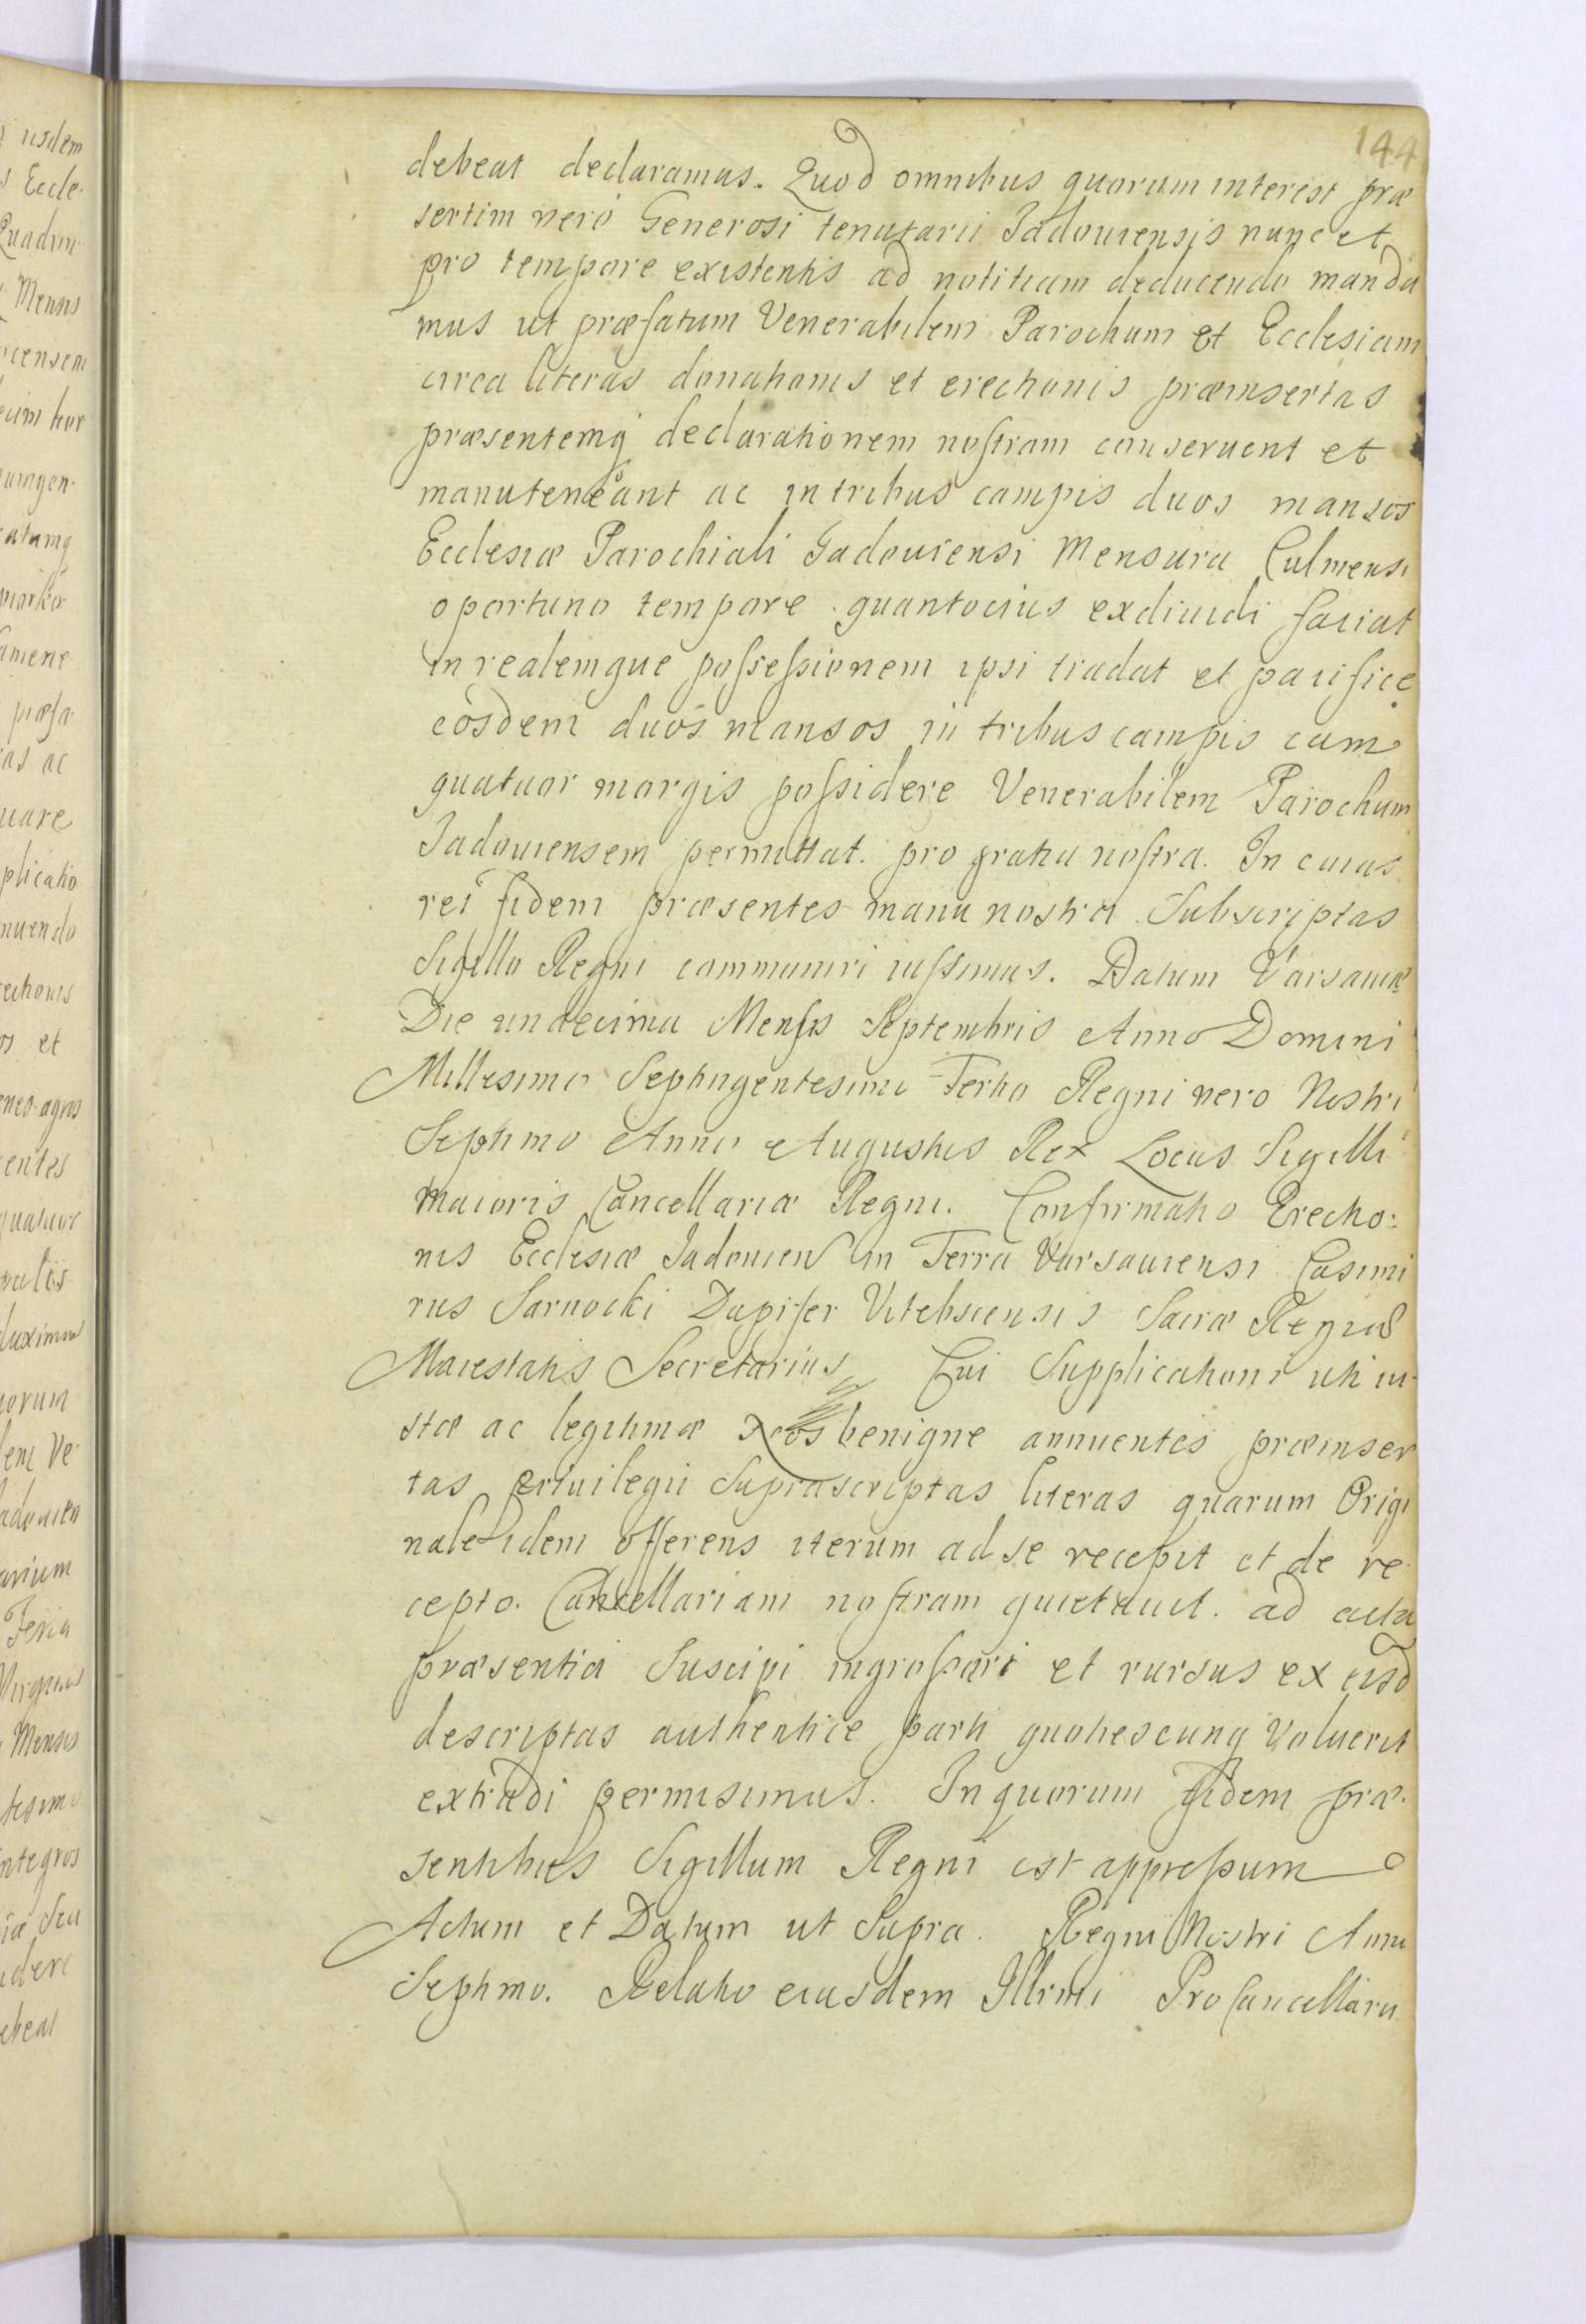 144
debeat declaramus. Quod omnibus quorum interest præ
sertim verò Generosi tenutarii Jadoviensis nunc et
pro tempore existentis ad notitiam deducendo manda
mus ut præfatum Venerabilem Parochum et Ecclesiam
circa literas donationis et erectionis præinsertas
præsentemq declarationem nostram conservent et
manuteneant ac in tribus campis duos mansos
Ecclesiæ Parochiali Jadoviensi Mensura Culmensi
oportuno tempore quantocius exdividi faciat
in realemque possessionem ipsi tradat et pacifice
eosdem duos mansos in tribus campis cum
quatuor morgis possidere Venerabilem Parochum
Jadoviensem permittat. pro gratia nostra. In cuius
rei fidem præsentes manu nostra Subscriptas
Sigillo Regni communiri iussimus. Datum Varsaviæ
Die undecima Mensis Septembris Anno Domini
Millesimo Septingentesimo Tertio Regni vero Nostri
Septimo Anno Augustus Rex Locus Sigilli
maioris Cancellariæ Regni. Confirmatio Erectio:
nis Ecclesiæ Jadovien in Terra Varsaviensi Casimi
rus Sarnocki Dapifer Vitebscensis Sacræ Regiæ
Maiestatis Secretarius Cui Supplicationi uti iu-
stæ ac legitimæ Nos benigne annuentes præinser
tas privilegii Suprascriptas literas quarum Origi
nale idem offerens iterum ad se recepit et de re
cepto. Cancellariam nostram quietavit. ad acta
præsentia Suscipi ingrossari et rursus ex eisd
descriptas authentice parti quotiescunq Voluerit
extradi permisimus. In quorum fidem præ.
sentibus Sigillum Regni est appressum
Actum et Datum ut Supra. Regni Nostri Anno
Septimo. Relatio eiusdem Illrmi Pro Cancellarii